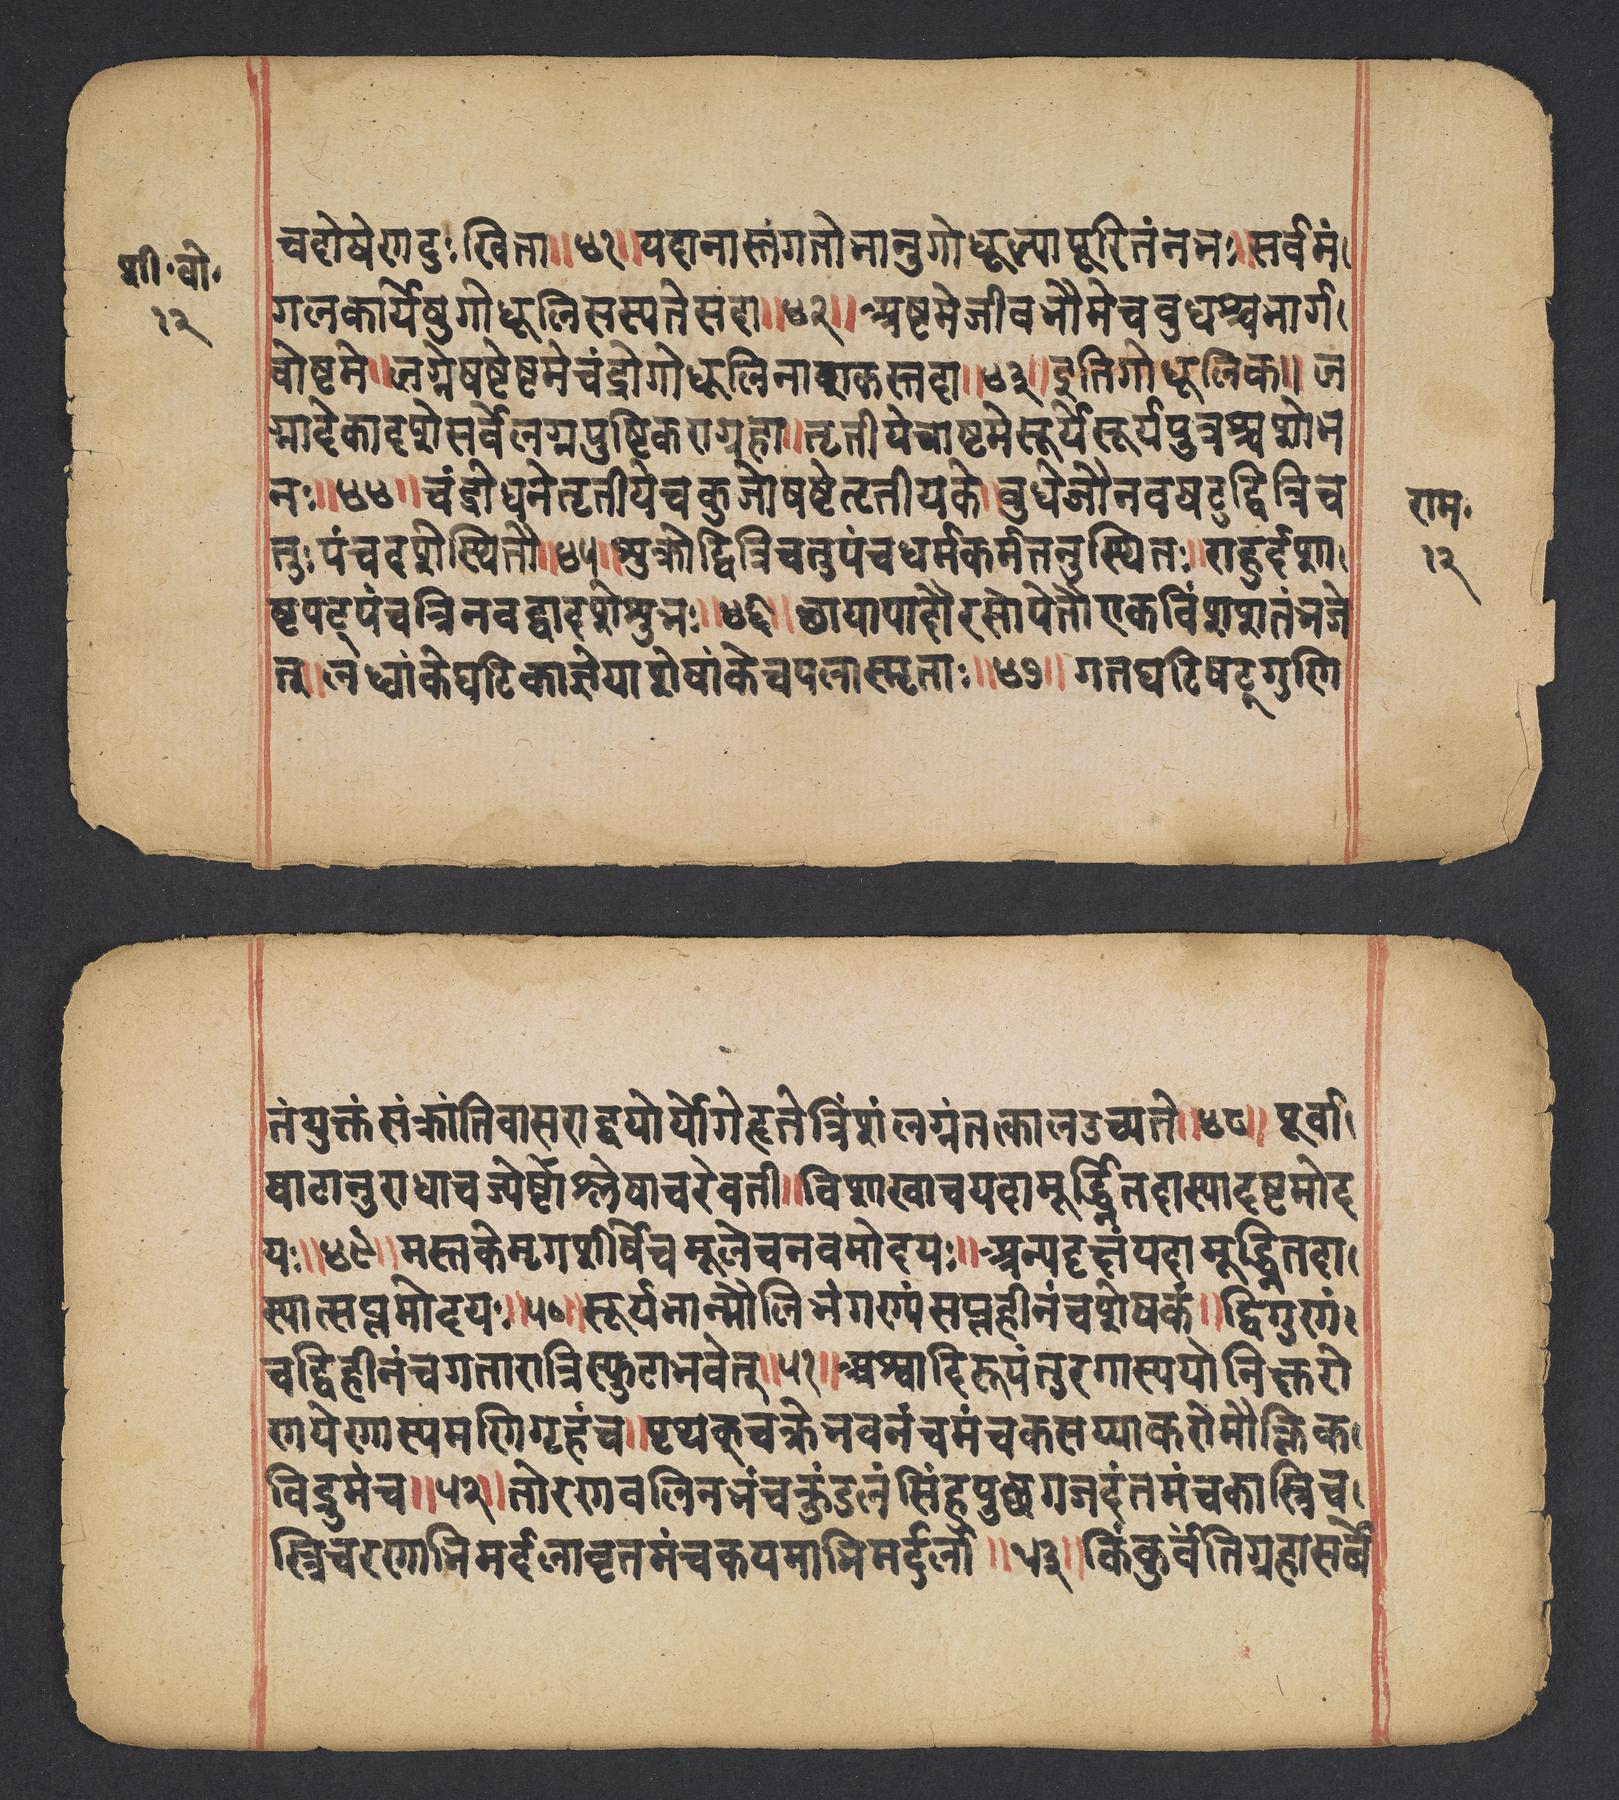 चदोषेणदुःखिता॥४१॥यदानास्तंगतोभानुगोधूल्यापूरितंनभः॥सर्वमं।
शी॰बो॰
१२
गलकार्येषुगोधूलिसस्यतेसदा॥४२॥अष्टमेजीवभौमेचबुधश्चभार्ग।
वोष्टमे॥लग्नेषष्टेष्टमेचंद्रोगोधूलिनाशकस्तदा॥४३॥इतिगोधूलिक॥ज
न्मादेकादशेसर्वेलग्नपुष्टिकराग्रहा॥तृतीयेचाष्टमेसूर्येसूर्यपुत्रश्चशोभ
नः॥४४॥चंद्रोधनेतृतीयेचकुजोषष्टेतृतीयके।बुधेजौनवषट्द्वित्रिच
तुःपंचदशेस्थितौ॥४५॥शुक्रोद्वित्रिचतुपंचधर्मकर्मतनुस्थितः॥राहुर्दशा।
राम॰
१२
ष्टषट्पंचत्रिनवद्वादशेशुभः॥४६॥छायापादौरसोपेतौएकविंशशतंभजे
त्॥लध्वांकेघटिकाज्ञेयाशेषांकेचपलास्मृताः॥४७॥गतघटिषट्गुणि
तंयुक्तंसंक्रांतिवासराद्वयोर्योगेहृतेत्रिंशंलग्नंतत्कालउच्यते॥४८॥पूर्वा।
षाढानुराधाचज्येष्टोश्लेषाचरेवती॥विशाखाचयदामूर्द्ध्नितदास्यादष्टमोद
यः॥४९॥मस्तकेमृगशीर्षेचमूलेचनवमोदयः॥अन्यदृक्षंयदामूर्द्ध्नितदा।
स्यात्सप्तमोदयः॥५०॥सूर्यभान्मौलिभंगण्यंसप्तहीनंचशेषकं॥द्विगुणं।
चद्विहीनंचगतारात्रिस्फुटाभवेत्॥५१॥अश्वादिरूपंतुरगास्ययोनिक्षरो
णयेणास्यमणिगृहंच॥पृथक्चक्रेभवनंचमंचकसय्याकरोमौक्तिक।
विद्रुमंच॥५२॥तोरणवलिनभंचकुंडलंसिंहपुछगजदंतमंचकास्त्रिच।
स्त्रिचरणाभिमर्दलावृतमंचकयमाभिमर्दलौ॥५३॥किंकुर्वंतिग्रहासर्वे